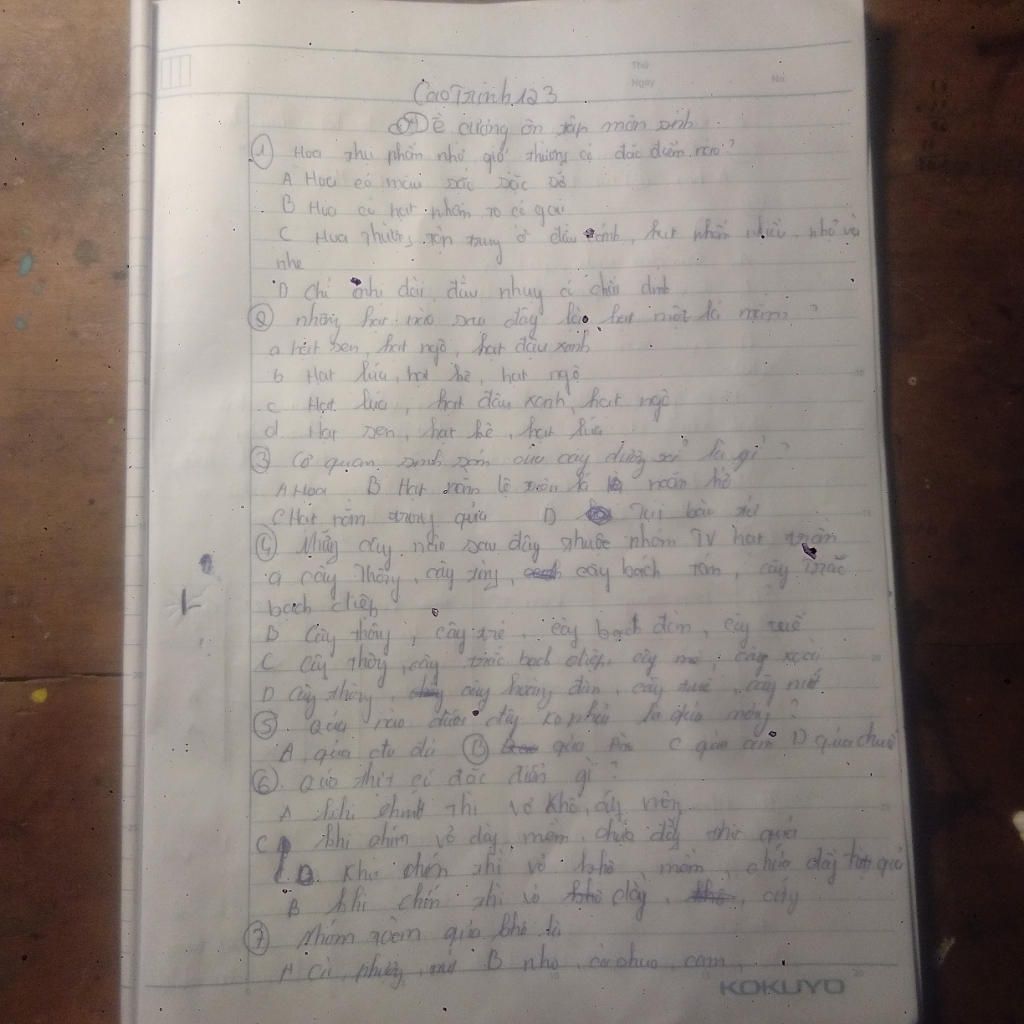 Thứ
Ngày No.
CaoTrinh123
Đề cương ôn tập môn sinh
1 Hoa thụ phấn nhờ gió thường có đặc điểm nào?
A Hoa có màu sắc sặc sỡ
B Hoa có hạt phấn to có gai
C Hoa thường tập trung ở đầu cành, hạt phấn nhiều, nhỏ và
nhẹ
D Chỉ nhị dài, đầu nhụy có chất dính
2 những hạt nào sau đây là hạt một lá mầm?
a hạt sen, hạt ngô, hạt đậu xanh
b Hạt lúa, hạt kê, hạt ngô
c Hạt lúa, hạt đậu xanh, hạt ngô
d Hạt sen, hạt kê, hạt lúa
3 Cơ quan sinh sản của cây dương xỉ là gì?
A Hoa B Hạt nằm lộ trên lá noãn hở
C Hạt nằm trong quả D Túi bào tử
4 Những cây nào sau đây thuộc nhóm TV hạt trần
a cây Thông, cây tùng, cây bách tán, cây trắc
bách diệp
B Cây thông, cây tre, cây bạch đàn, cây tuế
C Cây thông, cây trắc bách diệp, cây mè, cây xoài
D Cây thông, cây hoàng đàn, cây tuế, cây
5 Quả nào dưới đây ko phải là quả mọng?
A quả đu đủ B quả C quả cam D quả chuối
6 Quả thịt có đặc điểm gì?
A khi chín thì vỏ khô,
C khi chín vỏ dày, mềm, chứa đầy thịt quả
D. Khi chín thì vỏ mềm, chứa đầy thịt quả
B khi chín thì vỏ dày, cứng
7 Nhóm gồm quả khô là
A Cải, phượng, B nho, cà chua, cam,
KOKUYO